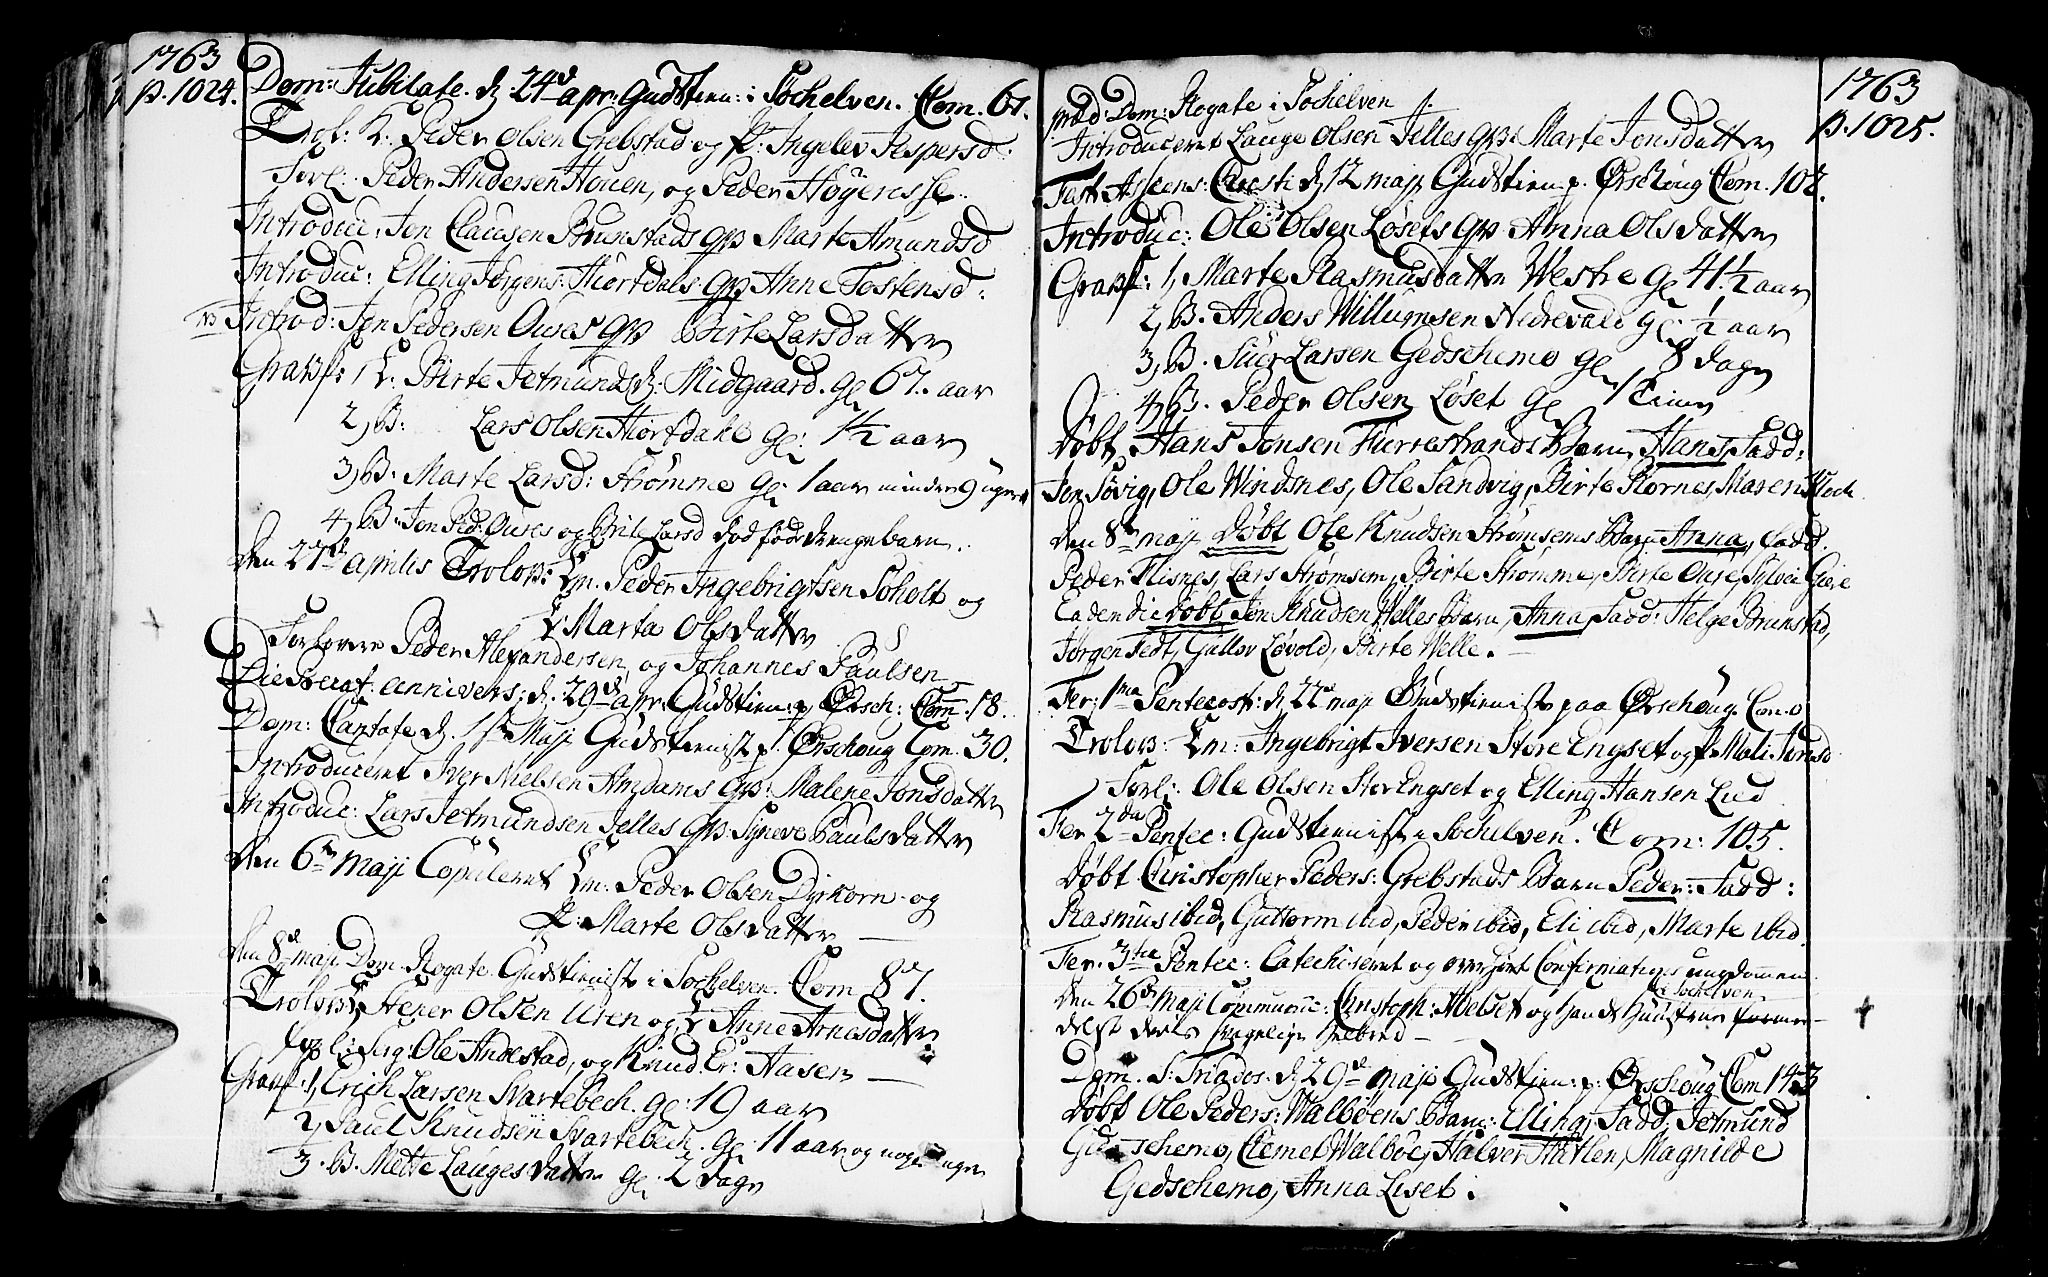 1763
p. 1024.
Dom: Jubilate. d. 24d apr: Gudstien: i Sochelven. Com. 61.
Trol: K: Peder Olsen Grebstad og P: Ingelev Jespersd:
Forl: Peder Andersen Houen, og Peder Höyeresse
Introduc: Jon Clausen Brunstads qv: Marte Amundsd
Introduc: Elling Jörgens: Hiortdals qv: Anne Tostensd:
NB Introd: Jon Pedersen Oures qv Birte Larsdatter
Gravf: 1 K: Birte Jetmundsd: Midgaard. gl 67. aar
2, B: Lars Olsen Hiortdahl gl: 1½ aar
3, B: Marte Larsd: Strømme gl: 1 aar minder 9 uger
4, B: Jon Ped: Oures og Brite Larsd død fød drengebarn.
Den 27de aprilis Trolov: Em. Peder Ingebrigtsen Soholt og
P Marta Olsdatter
Forlovere Peder Alexandersen, og Johannes Paulsen
Die Precat: annivers: d. 29d apr: Gudstien: p. Ørsch: Com. 18.
Dom: Cantate d. 1st Maji Gudstienist p. Ørschoug Com. 30.
Introduceret Iver Nielsen Amdams qv: Malene Jonsdatter
Introduc: Lars Jetmundsen Jelles qv: Synneve Paulsdatter
Den 6te Maji Copuleret Em: Peder Olsen Dyrkorn og
P: Marte Olsdatter
Den 8de maji Dom Rogate Gudstienist i Sochelven. Com 87.
Trolov: Stener Olsen Uren og P Anne Arnesdatter
forl: Serg: Ole Andestad, og Knud Er: Aasen
Gravf: 1, Erich Larsen Svartebech. gl: 19 aar
2, Paul Knudsen Svartebech. gl 11 aar og nogle uger
3. B. Mette Laugesdatter gl: 2 dage
1763
p. 1025.
præd: Dom: Rogate i Sochelven
Introduceret Lauge Olsen Jelles qv: Marte Jonsdatter
Fest: Ascens: Christi d. 12 maji Gudstien: p. Ørschoug Com. 102.
Introduc: Ole Olsen Løsets qv: Anna Olsdatter
Gravf: 1, Marte Rasmusdatter Westre gl 41½ aar
2, B. Anders Willumsen Nedrevald gl: ½ aar
3, B. Siur Larsen Gedschemo gl 8 dage
4, B. Peder Olsen Løset gl 1 time
Døbt Hans Jonsen Hurrestrands Barn Hans, Fadd:
Jon Søvig, Ole Windsnes, Ole Sandvig, Birte Rørnes, Maren Kloch
Den 8de maji Døbt Ole Knudsen Strømsems Barn Anna, fadd.
Peder Flisnes, Lars Strømsem, Birte Strømme, Birte Oure, Sylvei Giere
Eadem die Døbt Jon Knudsen Welles Barn, Anna, Fadd: Helge Brunstad,
Jørgen Tedt, Gullov Løvold, Birte Welle.
Fer: 1ma Pentecost: d. 22d maji Gudstienist paa Ørschoug. Com. 0
Trolov: Em: Ingebrigt Iversen Store Engset og P Mali Jonsd
Forl: Ole Olsen StorEngset og Elling Hansen Lied
Fer 2da Pentec: Gudstienist i Sochelven. Com: 105.
Døbt Christopher Peders: Grebstads Barn Peder: Fadd:
Rasmus ibid, Guttorm ibid, Peder ibid, Eli ibid, Marte ibid.
Fer. 3tia Pentec: Catechiseret og overhørt Confirmatiges ungdommen
i Sochelven
Den 26de Maji Communic: Christoph: Abelset og hands hustrue
deres svagelige helbred
Dom. S: Triados: d. 29de maji Gudstien: p. Ørschoug Com 143
Døbt Ole Peders: Walbøens Barn: Elling, Fadd: Jetmund
Gedschemo, Clemet Walbøe, Halver Hatlen, Magnilde
Gedschemo, Anna Liset.